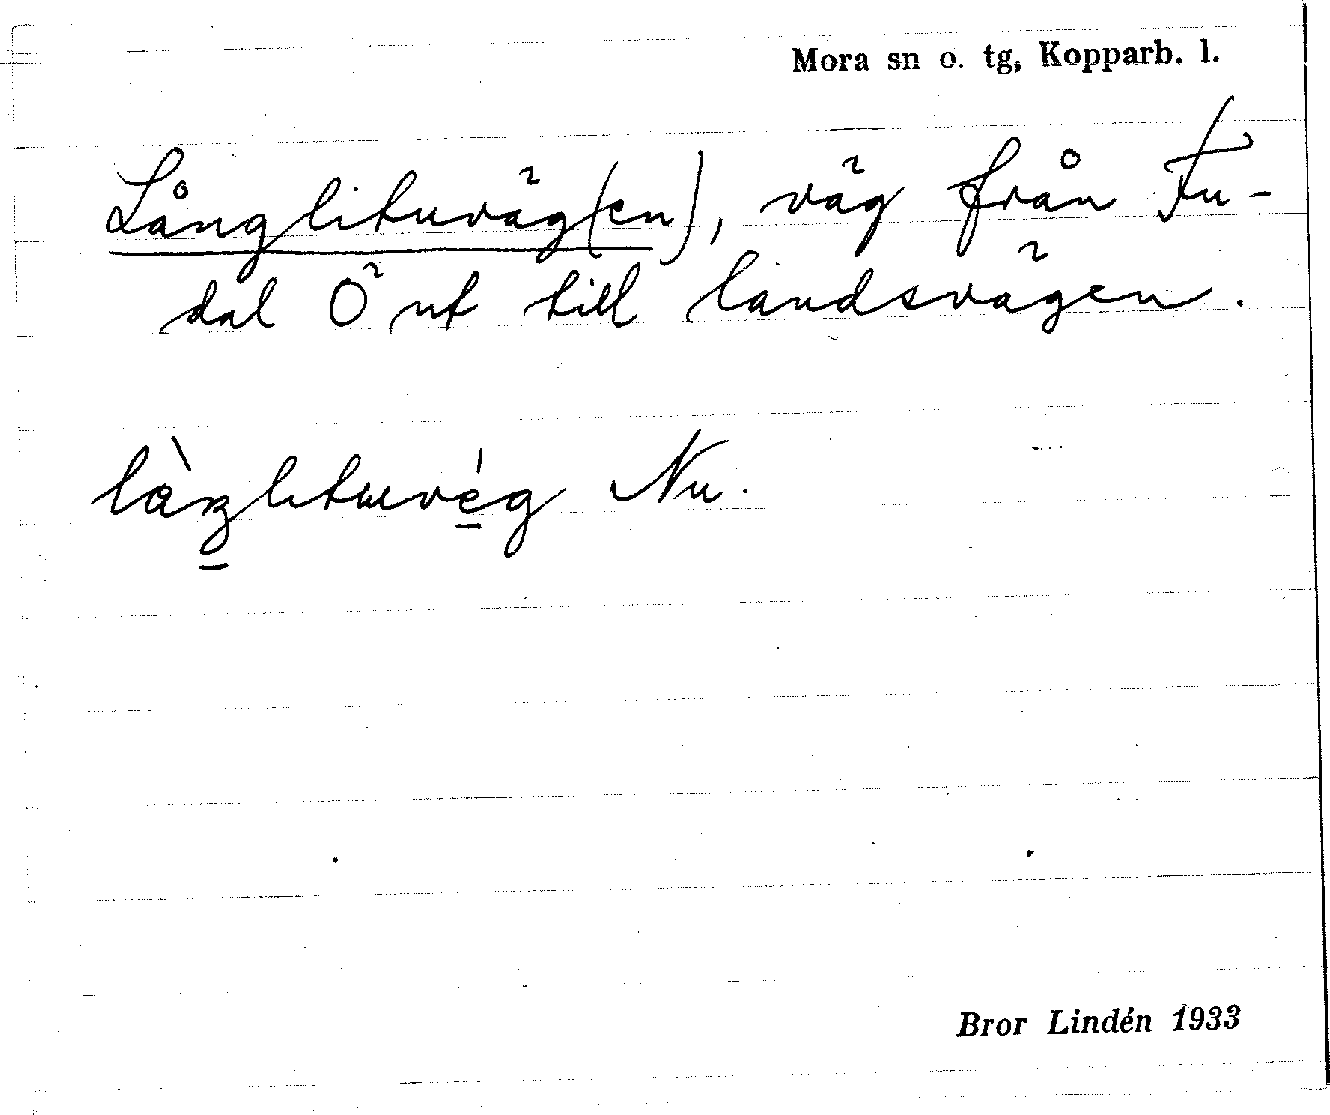 Mora sn o. tg, Kopparb. l.
Långlituväg(en), väg från Fu-
dal Ö ut till landsvägen.
làŋlituvég Nu.
Bror Lindén 1933